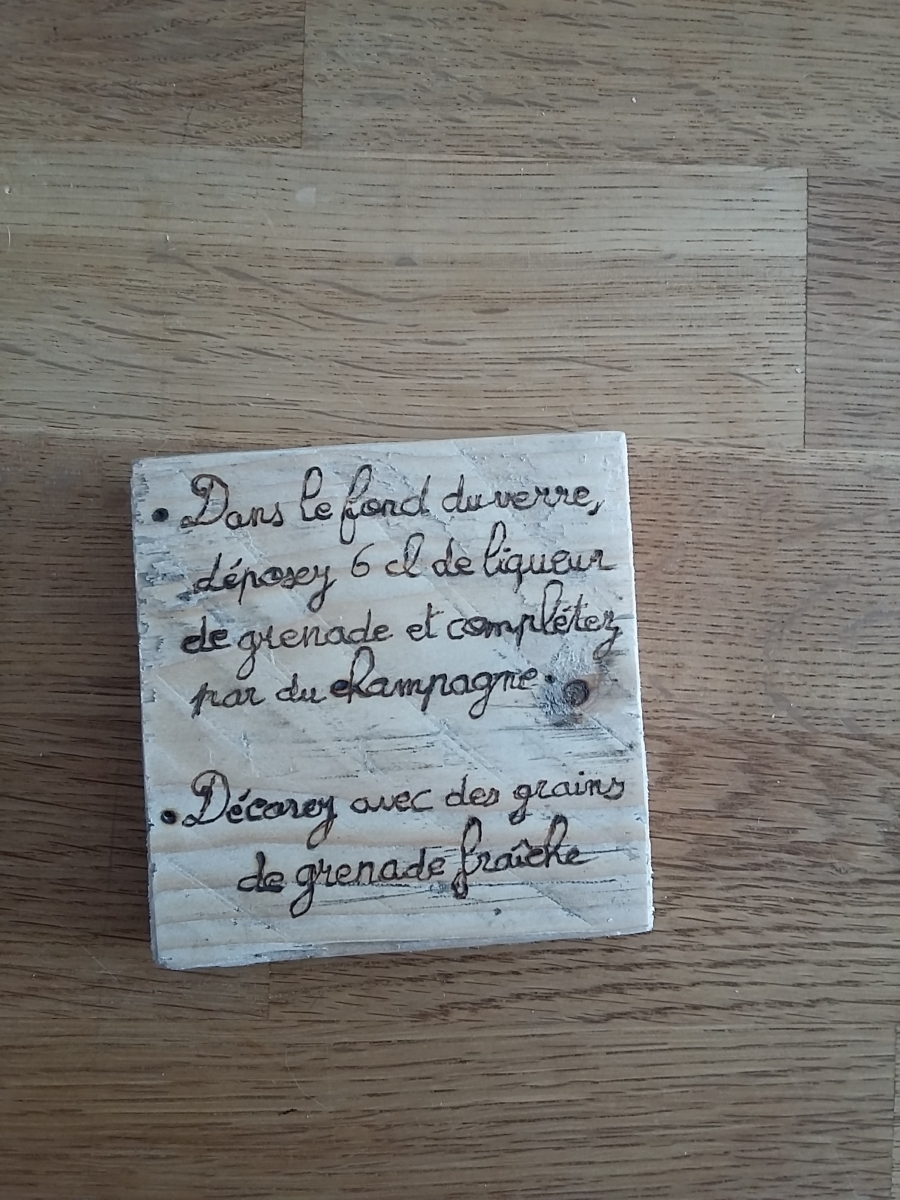 • Dans le fond du verre,
déposez 6 cl de liqueur
de grenade et complétez
par du champagne.
• Décorez avec des grains
de grenade fraîche